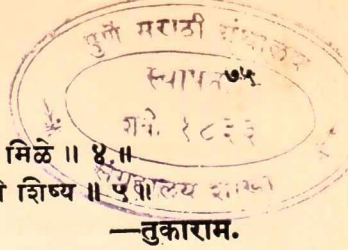 पुणें मराठी ग्रंथालय
स्थापना
७५
शके १८३३
मिळे ॥ ४ ॥
शिष्य ॥ ५ ॥
शाखा
—तुकाराम.